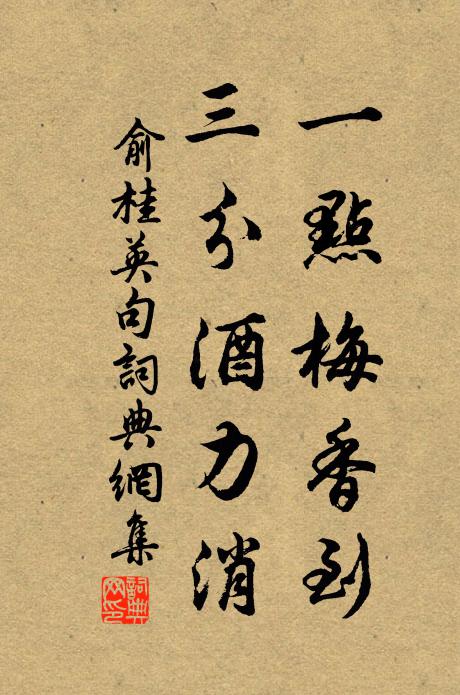 一點梅香到
三分酒力消
俞桂英句詞典網集
詞典网印